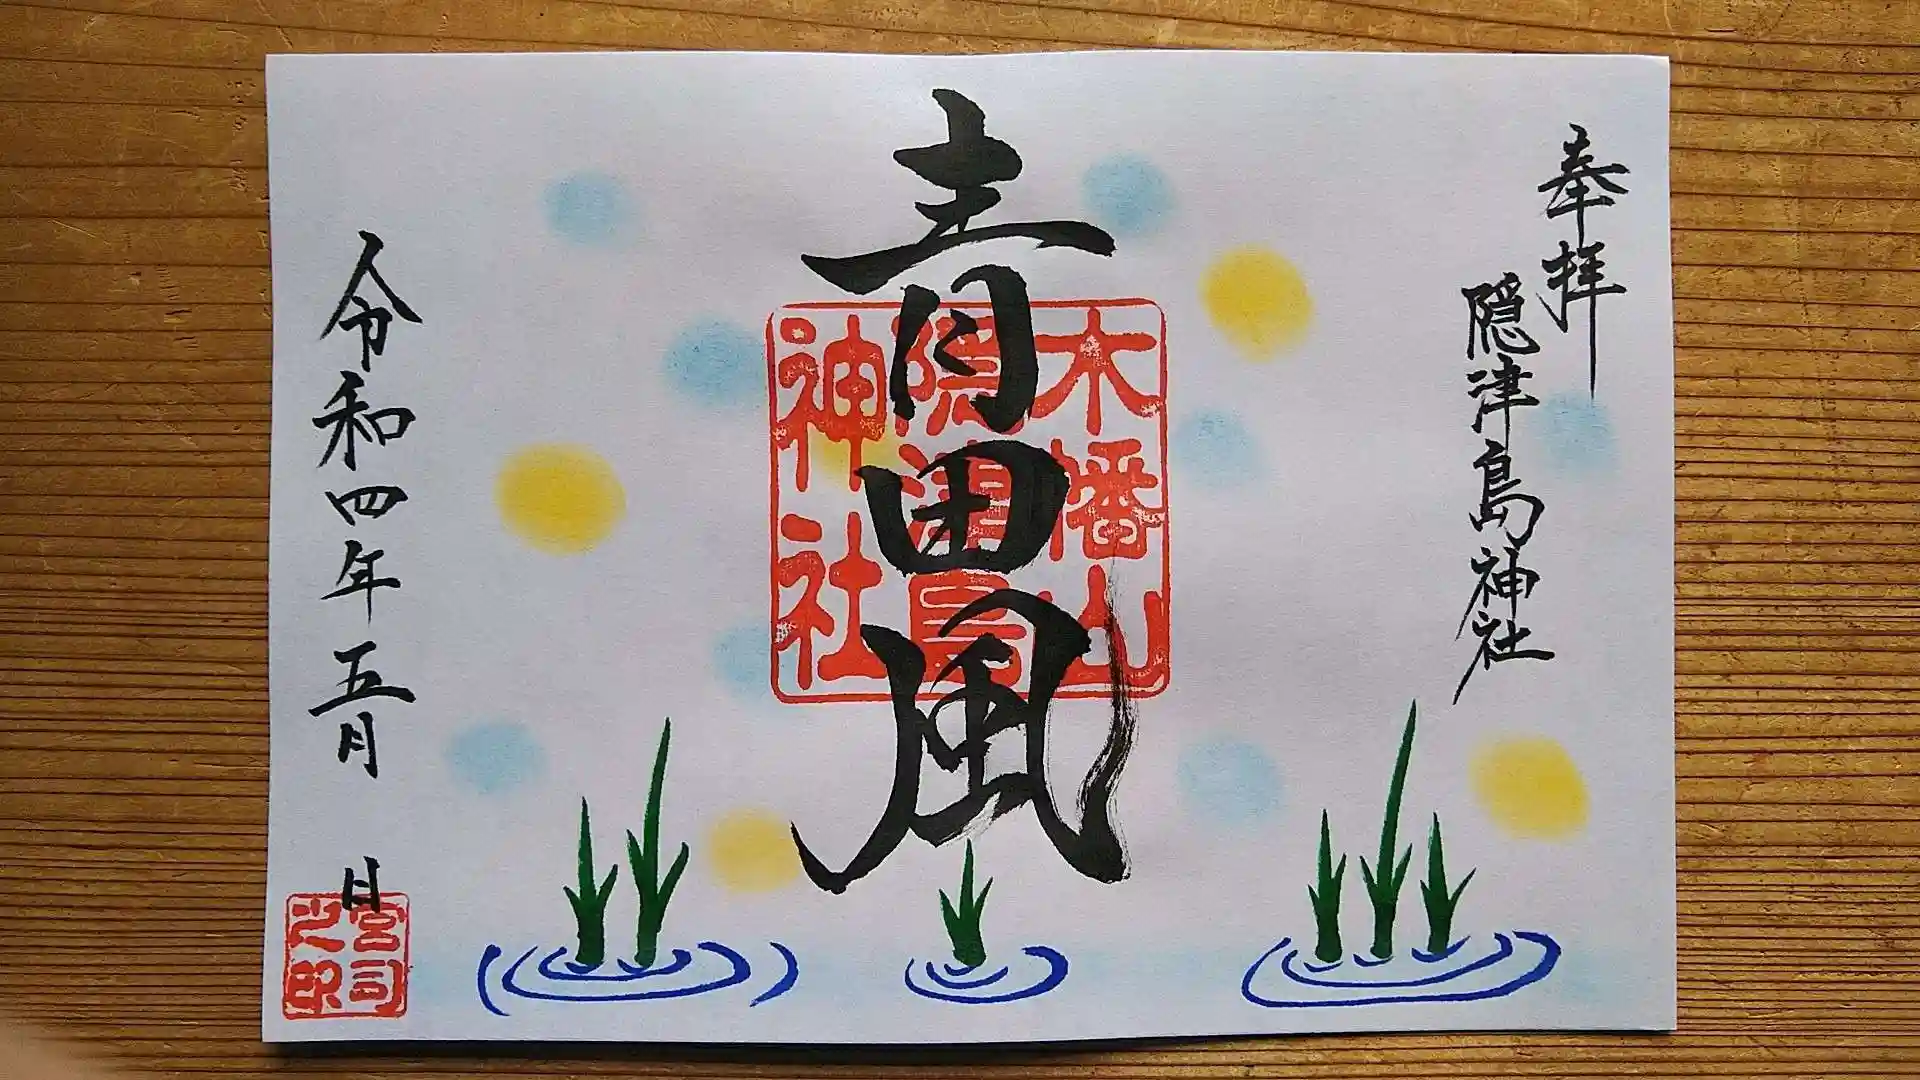 奉拝
隠津島神社
青田風
木幡山
隠津島
神社
令和四年五月 日
宮司
之印